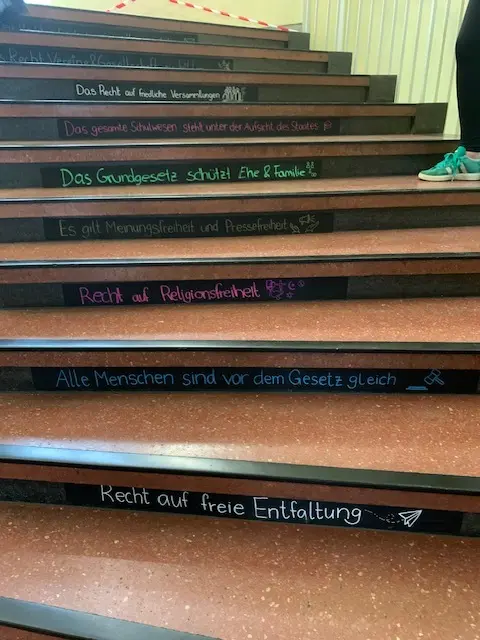 Recht Vereine & Gesellschaften
Das Recht auf friedliche Versammlungen
Das gesamte Schulwesen steht unter der Aufsicht des Staates
Das Grundgesetz schützt Ehe & Familie
Es gilt Meinungsfreiheit und Pressefreiheit
Recht auf Religionsfreiheit
Alle Menschen sind vor dem Gesetz gleich
Recht auf freie Entfaltung